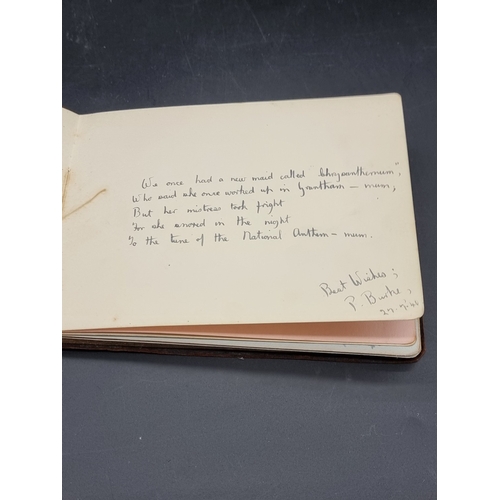 We once had a new maid called "Chrysanthemum",
Who said she once worked up in Grantham - mum,
But her mistress took fright
For she snored in the night
To the tune of the National Anthem - mum.
Best Wishes;
P. Burke,